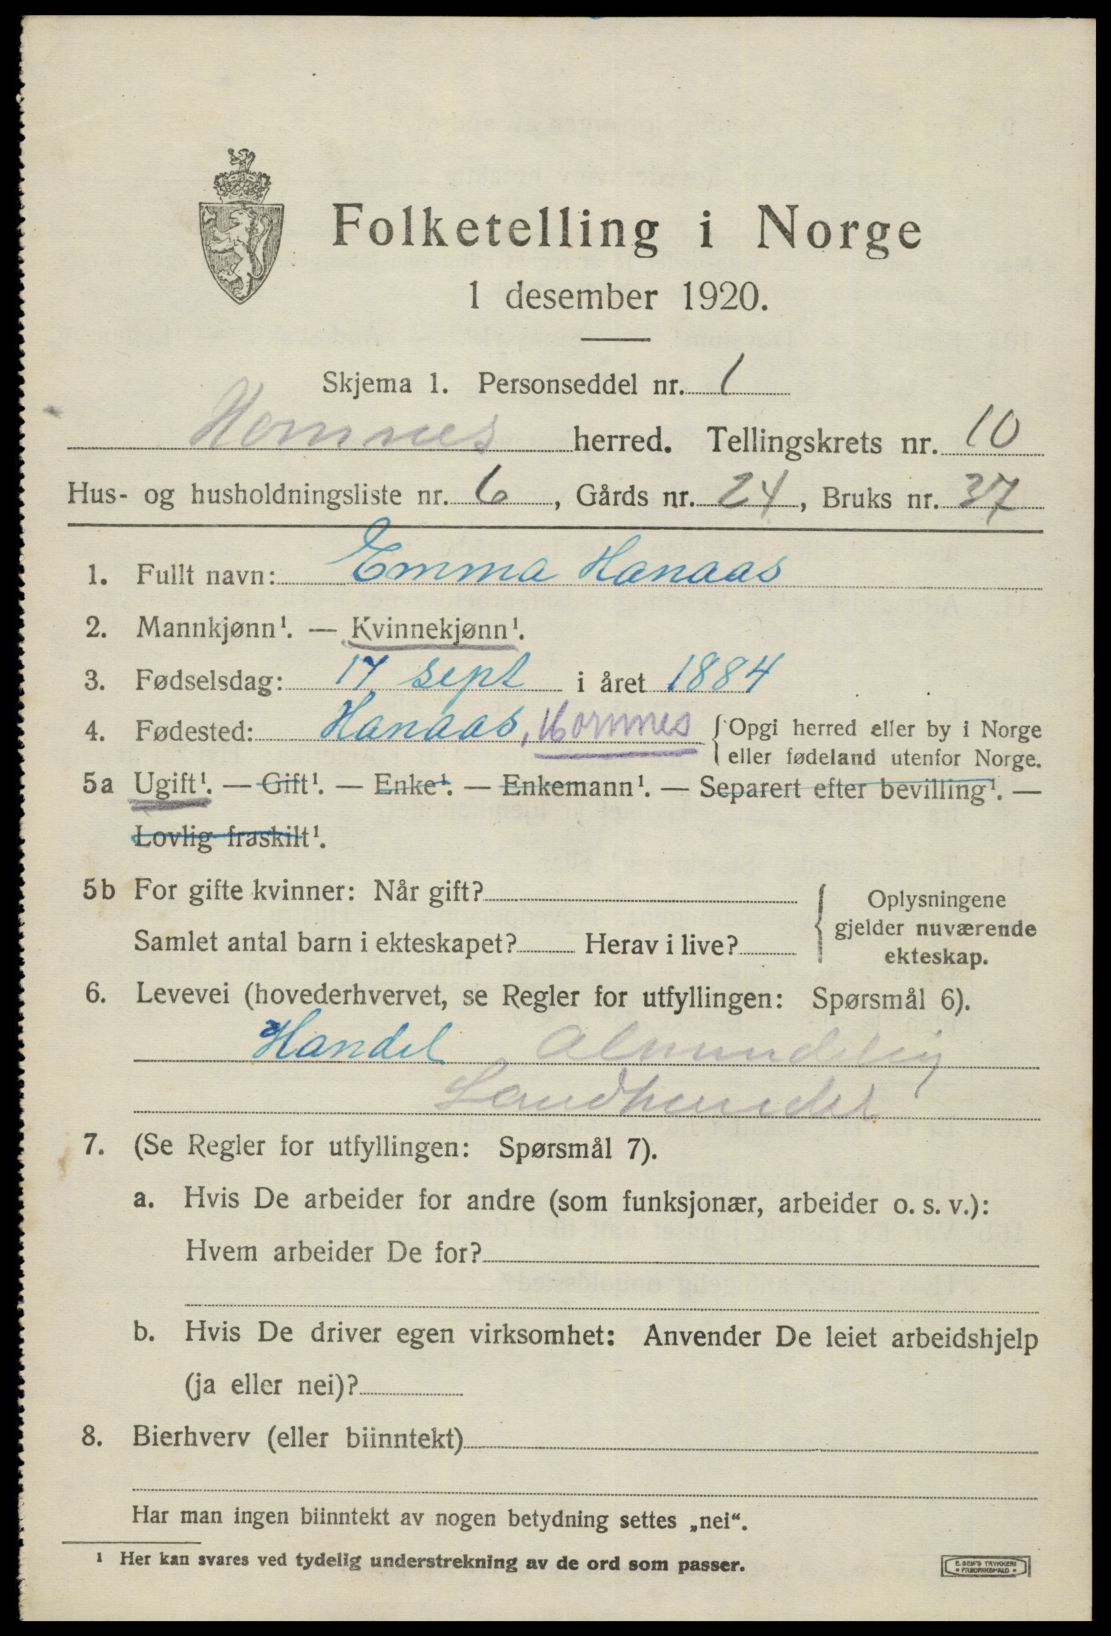 Folketelling i Norge
1 desember 1920.
Skjema 1. Personseddel nr. 1
Hornnes herred. Tellingskrets nr. 10
Hus- og husholdningsliste nr. 6, Gårds nr. 24, Bruks nr. 37
1. Fullt navn: Emma Hanaas
2. Mannkjønn¹. — Kvinnekjønn¹.
3. Fødselsdag: 17 sept i året 1884
4. Fødested: Hanaas, Hornnes { Opgi herred eller by i Norge
eller fødeland utenfor Norge.
5a Ugift¹. — Gift¹. — Enke¹. — Enkemann¹. — Separert efter bevilling¹. —
Lovlig fraskilt¹.
5b For gifte kvinner: Når gift?
Samlet antal barn i ekteskapet? Herav i live?
Oplysningene
gjelder nuværende
ekteskap.
6. Levevei (hovederhvervet, se Regler for utfyllingen: Spørsmål 6).
Handel Almindelig
Landhandel
7. (Se Regler for utfyllingen: Spørsmål 7).
a. Hvis De arbeider for andre (som funksjonær, arbeider o. s. v.):
Hvem arbeider De for?
b. Hvis De driver egen virksomhet: Anvender De leiet arbeidshjelp
(ja eller nei)?
8. Bierhverv (eller biinntekt)
Har man ingen biinntekt av nogen betydning settes „nei“.
¹ Her kan svares ved tydelig understrekning av de ord som passer.